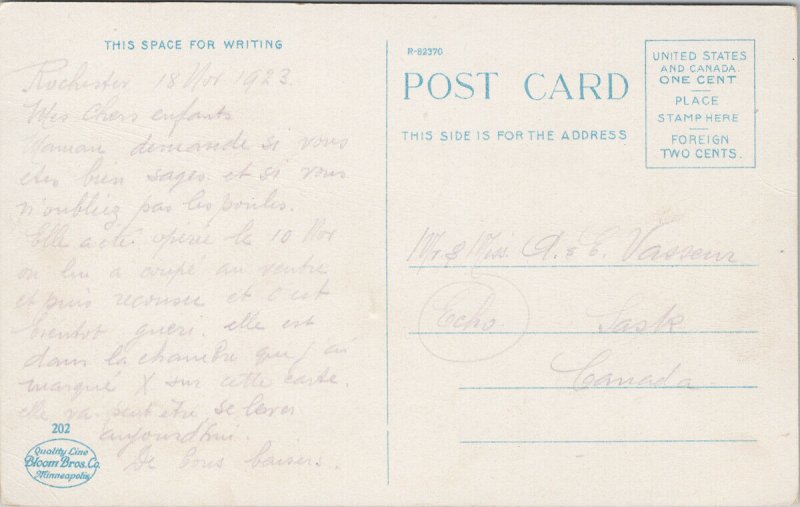 THIS SPACE FOR WRITING
Rochester 18 Nov 1923.
Mes chers enfants
Maman demande si vous
etes bien sages et si vous
n'oubliez pas les poules.
Elle a été opérée le 10 Nov
on lui a coupé au ventre
et puis recousue et c'est
bientot gueri. elle est
dans la chambre que j'ai
marqué X sur cette carte.
elle va peut être se lever
aujourd'hui.
De bons baisers.
202
Quality Line
Bloom Bros. Co.
Minneapolis
R-82370
POST CARD
THIS SIDE IS FOR THE ADDRESS
UNITED STATES
AND CANADA.
ONE CENT
PLACE
STAMP HERE
FOREIGN
TWO CENTS.
Mr & Miss. A. & E. Vasseur
Echo Sask
Canada